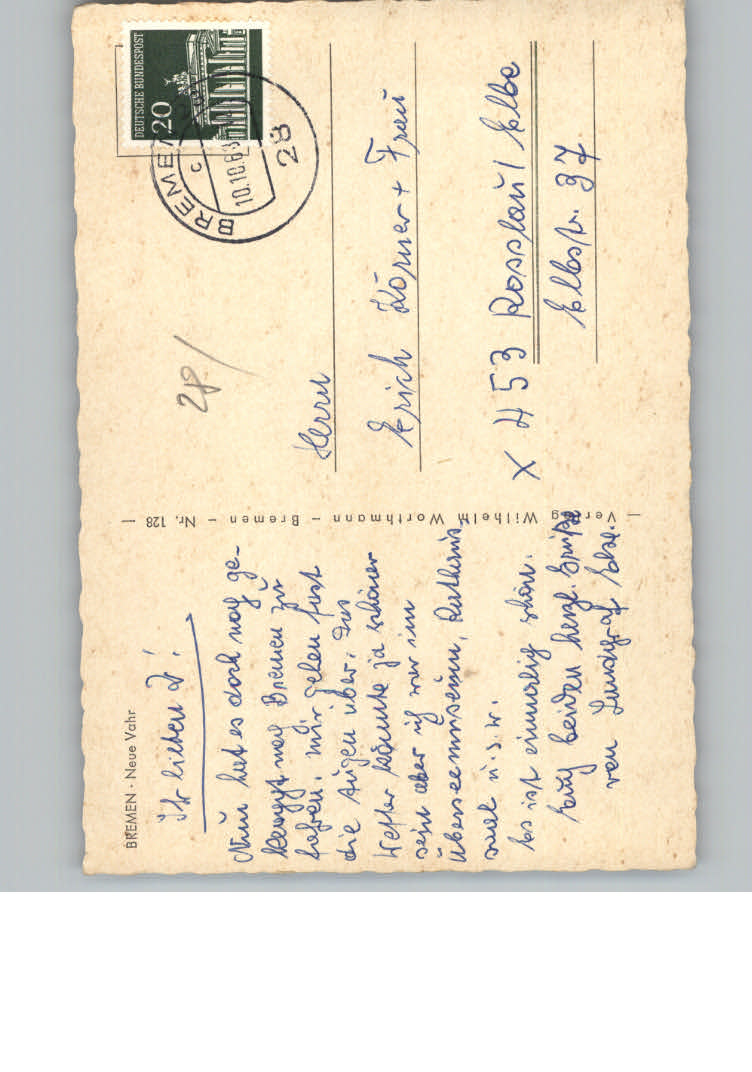 BREMEN · Neue Vahr
Ihr lieben 2!
Nun hat es doch noch ge-
klappt nach Bremen zu
fahren. Mir gehen fast
die Augen über. Das
Wetter könnte ja schöner
sein aber ich war im
Überseemuseum, Rathaus
und u.s.w.
Es ist einmalig schön.
Euch beiden herzl. Grüße
von Else.
— Verlag Wilhelm Worthmann – Bremen – Nr. 128 —
DEUTSCHE BUNDESPOST
20
28 BREMEN
c
10.10.68
28
Herrn
Erich Körner + Frau
X 453 Rosslau / Elbe
Elbstr. 37